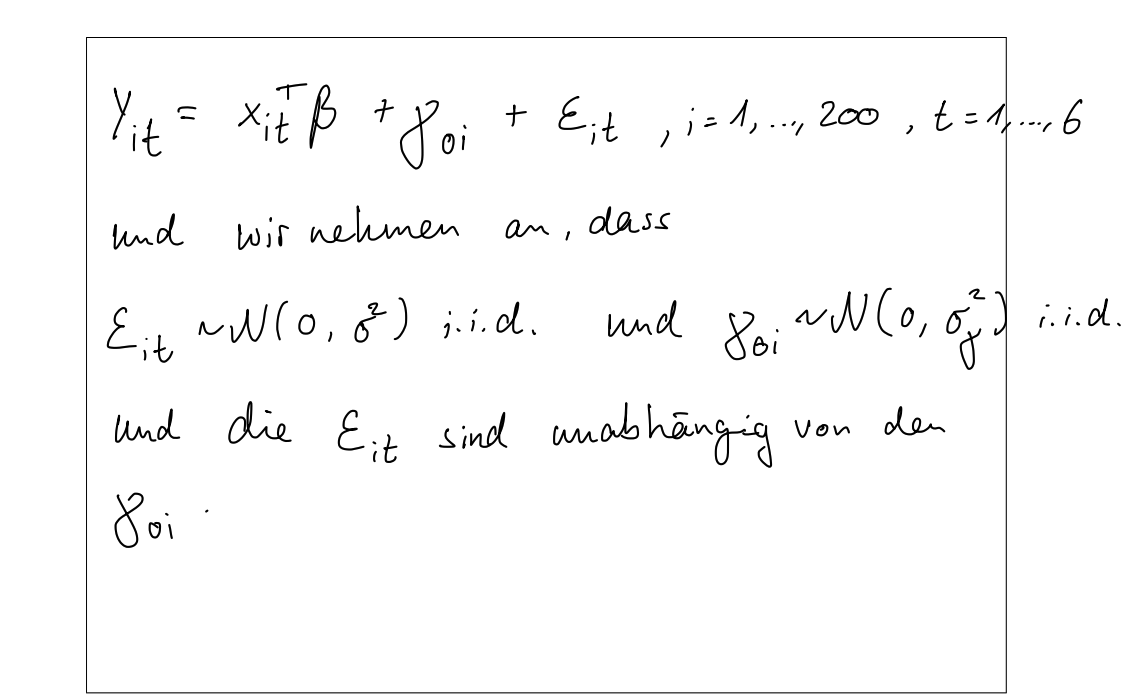 Y_{it} = x_{it}^T β + γ_{0i} + ε_{it} , i = 1, ..., 200 , t = 1, ..., 6
und wir nehmen an, dass
ε_{it} ~ N(0, σ²) i.i.d. und γ_{0i} ~ N(0, σ_γ²) i.i.d.
und die ε_{it} sind unabhängig von den
γ_{0i} .